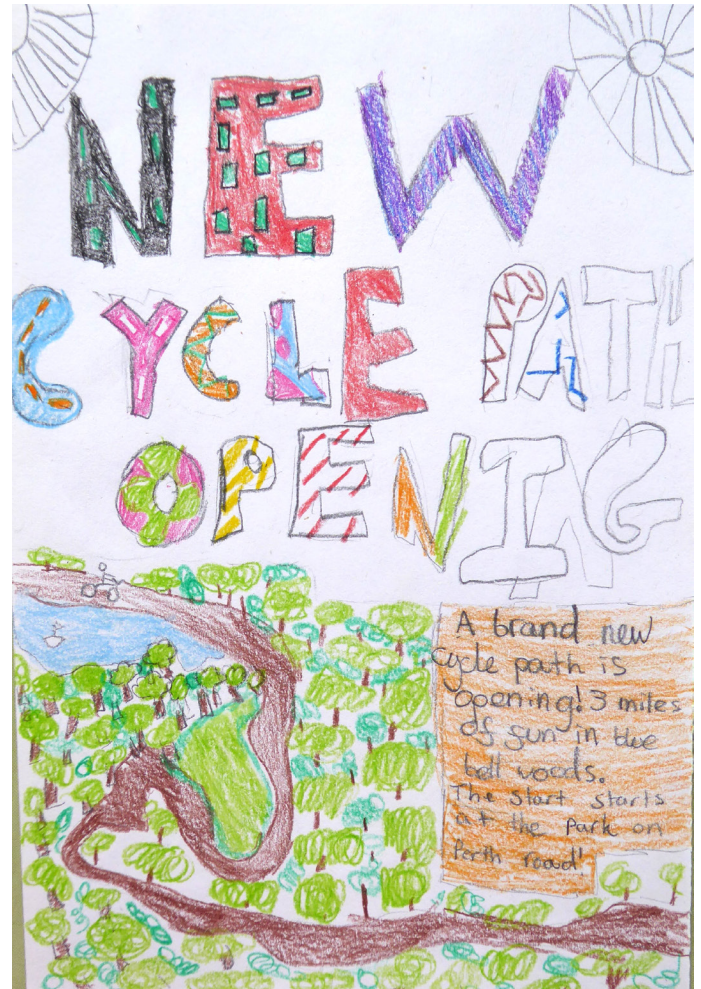 NEW
CYCLE PATH
OPENING
A brand new
cycle path is
opening! 3 miles
of fun in blue
bell woods.
The start starts
at the park on
road!